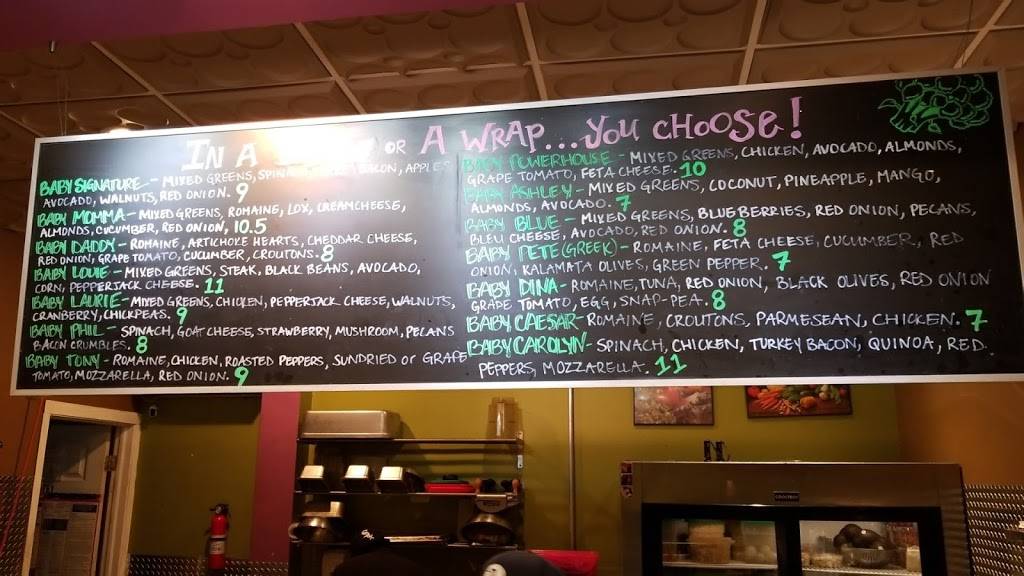 IN A OR A WRAP....YOU CHOOSE!
BABY SIGNATURE - MIXED GREENS, SPINACH, BACON, APPLES
AVOCADO, WALNUTS, RED ONION. 9
BABY MOMMA - MIXED GREENS, ROMAINE, LOX, CREAMCHEESE,
ALMONDS, CUCUMBER, RED ONION, 10.5
BABY DADDY - ROMAINE, ARTICHOKE HEARTS, CHEDDAR CHEESE,
RED ONION, GRAPE TOMATO, CUCUMBER, CROUTONS. 8
BABY LOUIE - MIXED GREENS, STEAK, BLACK BEANS, AVOCADO,
CORN, PEPPERJACK CHEESE. 11
BABY LAURIE - MIXED GREENS, CHICKEN, PEPPERJACK CHEESE, WALNUTS,
CRANBERRY, CHICKPEAS. 9
BABY PHIL - SPINACH, GOAT CHEESE, STRAWBERRY, MUSHROOM, PECANS
BACON CRUMBLES. 8
BABY TONY - ROMAINE, CHICKEN, ROASTED PEPPERS, SUNDRIED or GRAPE
TOMATO, MOZZARELLA, RED ONION. 9
BABY POWERHOUSE - MIXED GREENS, CHICKEN, AVOCADO, ALMONDS,
GRAPE TOMATO, FETA CHEESE. 10
BABY ASHLEY - MIXED GREENS, COCONUT, PINEAPPLE, MANGO,
ALMONDS, AVOCADO. 7
BABY BLUE - MIXED GREENS, BLUEBERRIES, RED ONION, PECANS,
BLEU CHEESE, AVOCADO, RED ONION. 8
BABY PETE (GREEK) - ROMAINE, FETA CHEESE, CUCUMBER, RED
ONION, KALAMATA OLIVES, GREEN PEPPER. 7
BABY DINA - ROMAINE, TUNA, RED ONION, BLACK OLIVES, RED ONION
GRAPE TOMATO, EGG, SNAP-PEA. 8
BABY CAESAR - ROMAINE, CROUTONS, PARMESEAN, CHICKEN. 7
BABY CAROLYN - SPINACH, CHICKEN, TURKEY BACON, QUINOA, RED.
PEPPERS, MOZZARELLA. 11